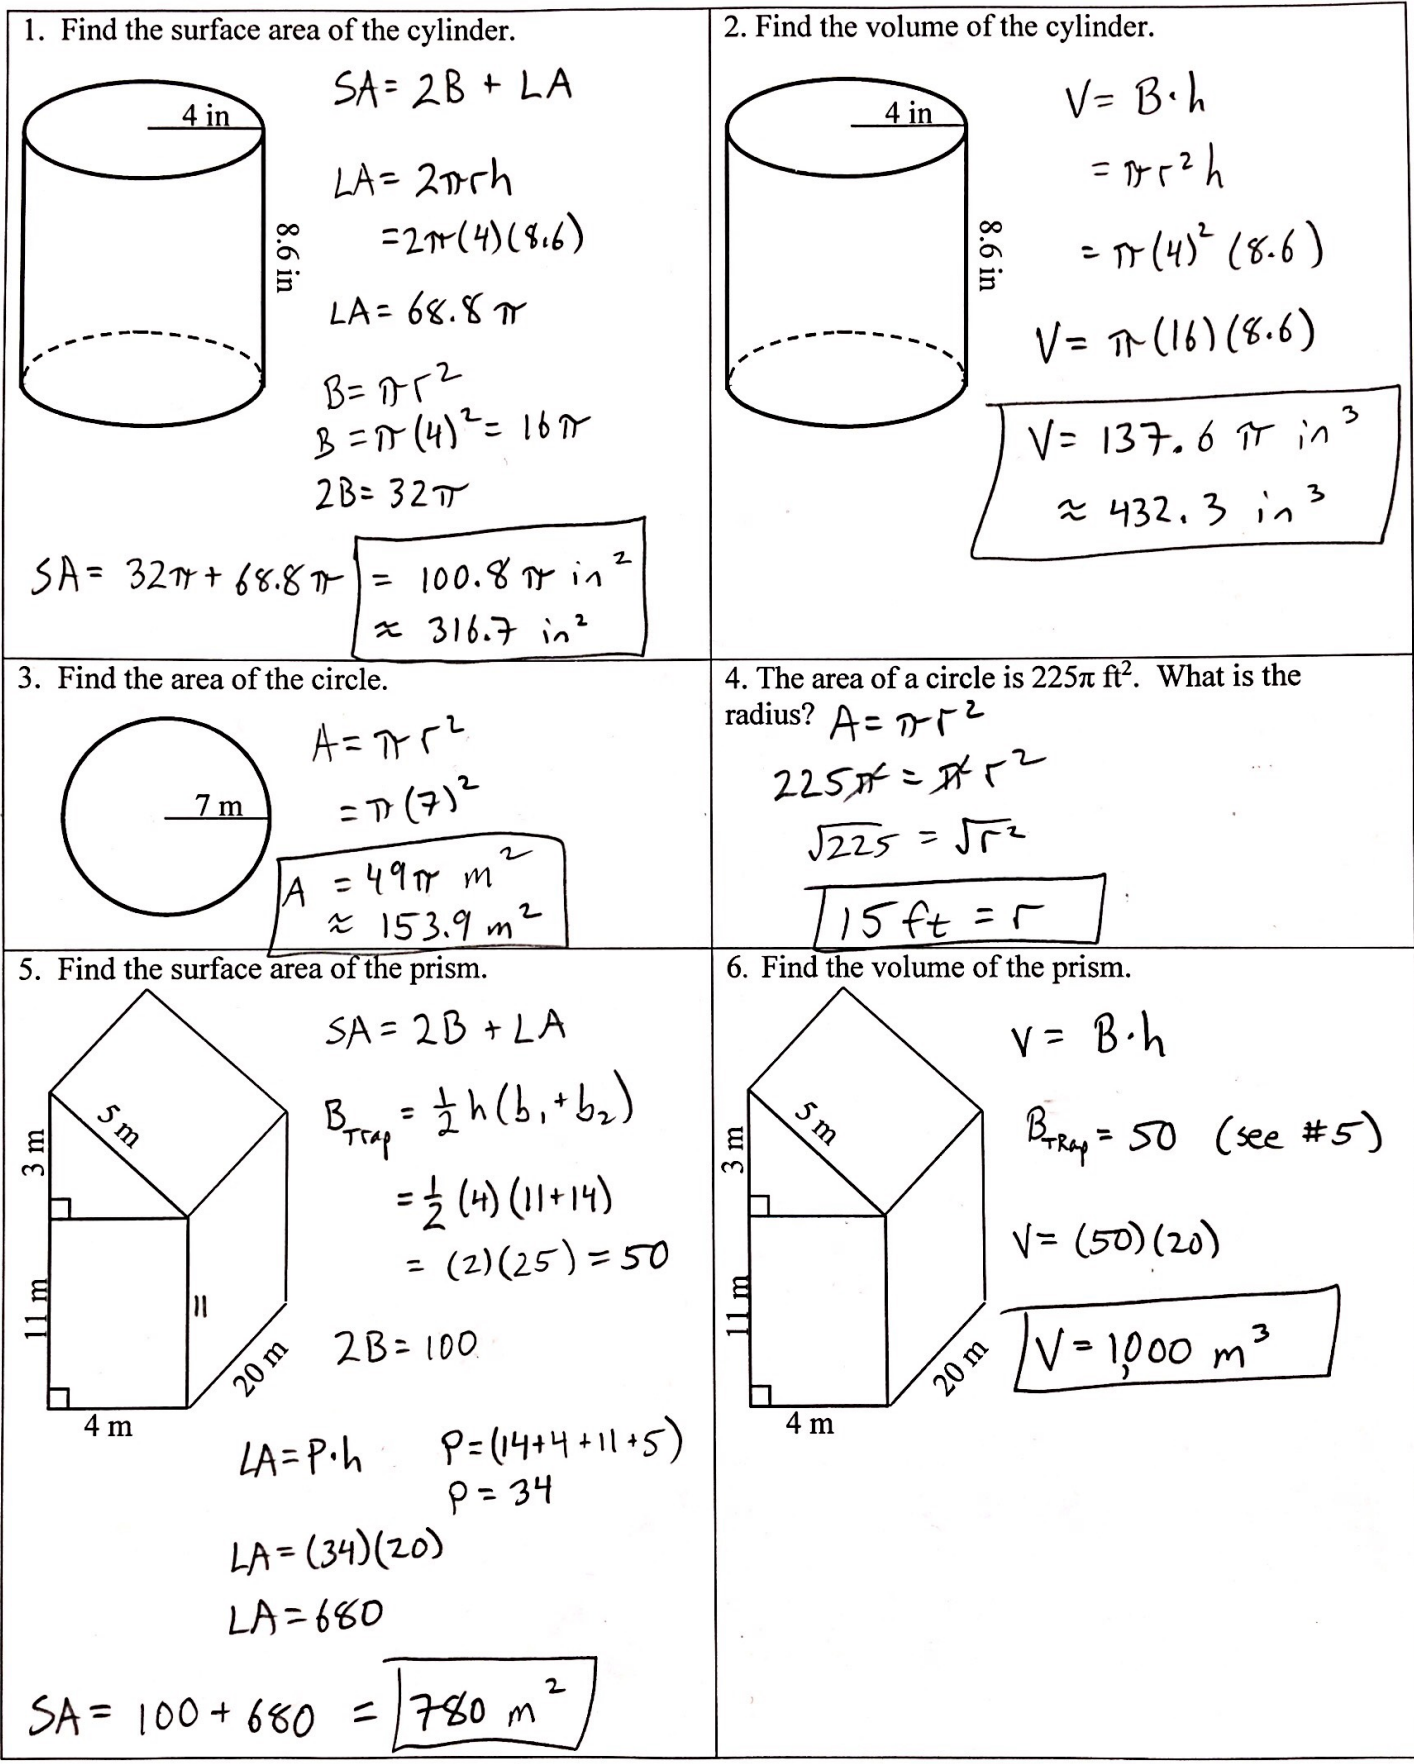 1. Find the surface area of the cylinder.
4 in
8.6 in
SA= 2B + LA
LA= 2πrh
=2π(4)(8.6)
LA= 68.8 π
B= πr²
B =π(4)²= 16π
2B= 32π
SA= 32π+ 68.8π = 100.8 π in²
≈ 316.7 in²
2. Find the volume of the cylinder.
4 in
8.6 in
V= B·h
= πr²h
= π(4)² (8.6)
V= π(16)(8.6)
V= 137.6 π in³
≈ 432.3 in³
3. Find the area of the circle.
7 m
A= πr²
= π(7)²
A = 49π m²
≈ 153.9 m²
4. The area of a circle is 225π ft². What is the
radius? A= πr²
225π = πr²
√225 = √r²
15 ft = r
5. Find the surface area of the prism.
5 m
3 m
11 m
11
20 m
4 m
SA= 2B + LA
B Trap = ½ h(b₁+b₂)
= ½ (4)(11+14)
= (2)(25) = 50
2B= 100
LA=P·h P=(14+4+11+5)
P= 34
LA= (34)(20)
LA=680
SA= 100+ 680 = 780 m²
6. Find the volume of the prism.
5 m
3 m
11 m
20 m
4 m
V= B·h
B TRap = 50 (see #5)
V= (50)(20)
V= 1,000 m³